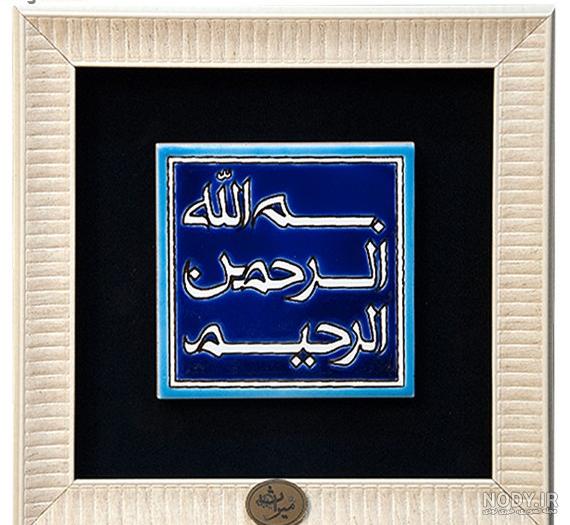 بسم الله
الرحمن
الرحيم
NODY.IR